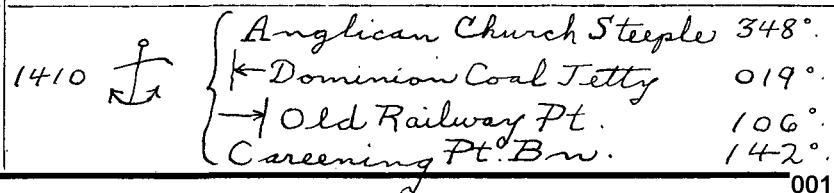 Anglican Church Steeple 348°.
1410 Dominion Coal Jetty 019°.
Old Railway Pt. 106°.
Careening Pt. Bn. 142°.
001